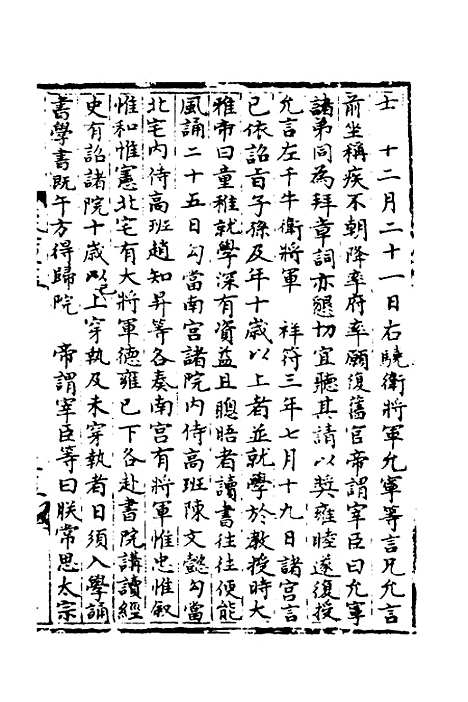 士　十二月二十一日右驍衛將軍允寧等言兄允言
前坐稱疾不朝降率府率願復舊官帝謂宰臣曰允寧
諸弟同為拜章詞亦懇切宜聽其請以奬雍睦遂復授
允言左千牛衛將軍　祥符三年七月十九日諸宮言
已依詔旨子孫及年十歲以上者並就學於教授時大
雅帝曰童稚就學深有資益且聰晤者讀書往往便能
風誦二十五日勾當南宮諸院內侍高班陳文懿勾當
北宅內侍高班趙知昇等各奏南宮有將軍惟忠惟叙
惟和惟憲北宅有大將軍德雍已下各赴書院講讀經
史有詔諸院十歲以上穿執及未穿執者日須入學誦
書學書既午方得歸院　帝謂宰臣等曰朕常思太宗